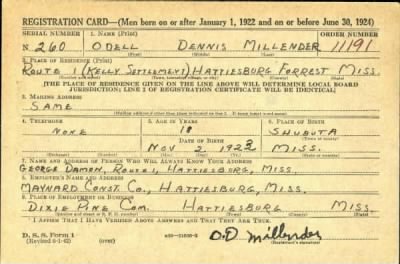 REGISTRATION CARD—(Men born on or after January 1, 1922 and on or before June 30, 1924)
SERIAL NUMBER 1. NAME (Print) ORDER NUMBER
N 260 ODELL DENNIS MILLENDER 11191
(First) (Middle) (Last)
2. PLACE OF RESIDENCE (Print)
ROUTE 1 (KELLY SETTLEMENT) HATTIESBURG FORREST MISS.
(Number and street) (Town, township, village, or city) (County) (State)
[THE PLACE OF RESIDENCE GIVEN ON THE LINE ABOVE WILL DETERMINE LOCAL BOARD
JURISDICTION; LINE 2 OF REGISTRATION CERTIFICATE WILL BE IDENTICAL]
3. MAILING ADDRESS
SAME
(Mailing address if other than place indicated on line 2. If same insert word same)
4. TELEPHONE 5. AGE IN YEARS 6. PLACE OF BIRTH
NONE 18 SHUBUTA
DATE OF BIRTH (Town or county)
NOV 2 1923 MISS.
(Exchange) (Number) (Mo.) (Day) (Yr.) (State or country)
7. NAME AND ADDRESS OF PERSON WHO WILL ALWAYS KNOW YOUR ADDRESS
GEORGE DAMON, ROUTE 1, HATTIESBURG, MISS.
8. EMPLOYER'S NAME AND ADDRESS
MAYNARD CONST. CO., HATTIESBURG, MISS.
9. PLACE OF EMPLOYMENT OR BUSINESS
DIXIE PINE COM. HATTIESBURG MISS.
(Number and street or R. F. D. number) (Town) (County) (State)
I AFFIRM THAT I HAVE VERIFIED ABOVE ANSWERS AND THAT THEY ARE TRUE.
D. S. S. Form 1
(over) O.D. Millender
(Registrant's signature)